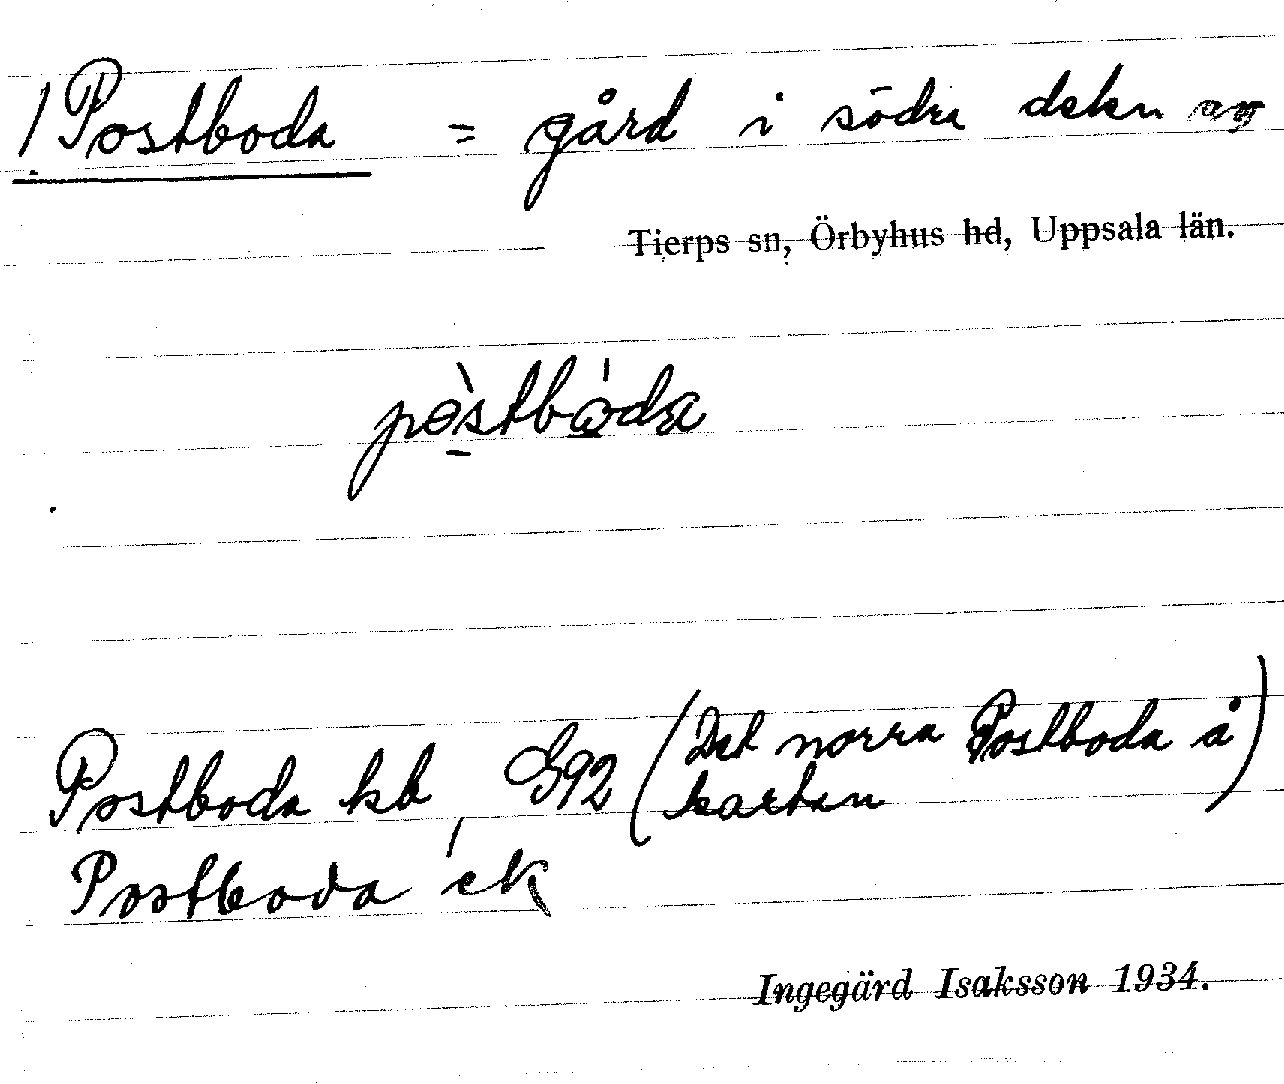 1 Postboda = gård i södra delen av
Tierps sn, Örbyhus hd, Uppsala län.
pòstbóda
Postboda kb, G92 (Det norra Postboda å
kartan)
Postboda ek
Ingegärd Isaksson 1934.